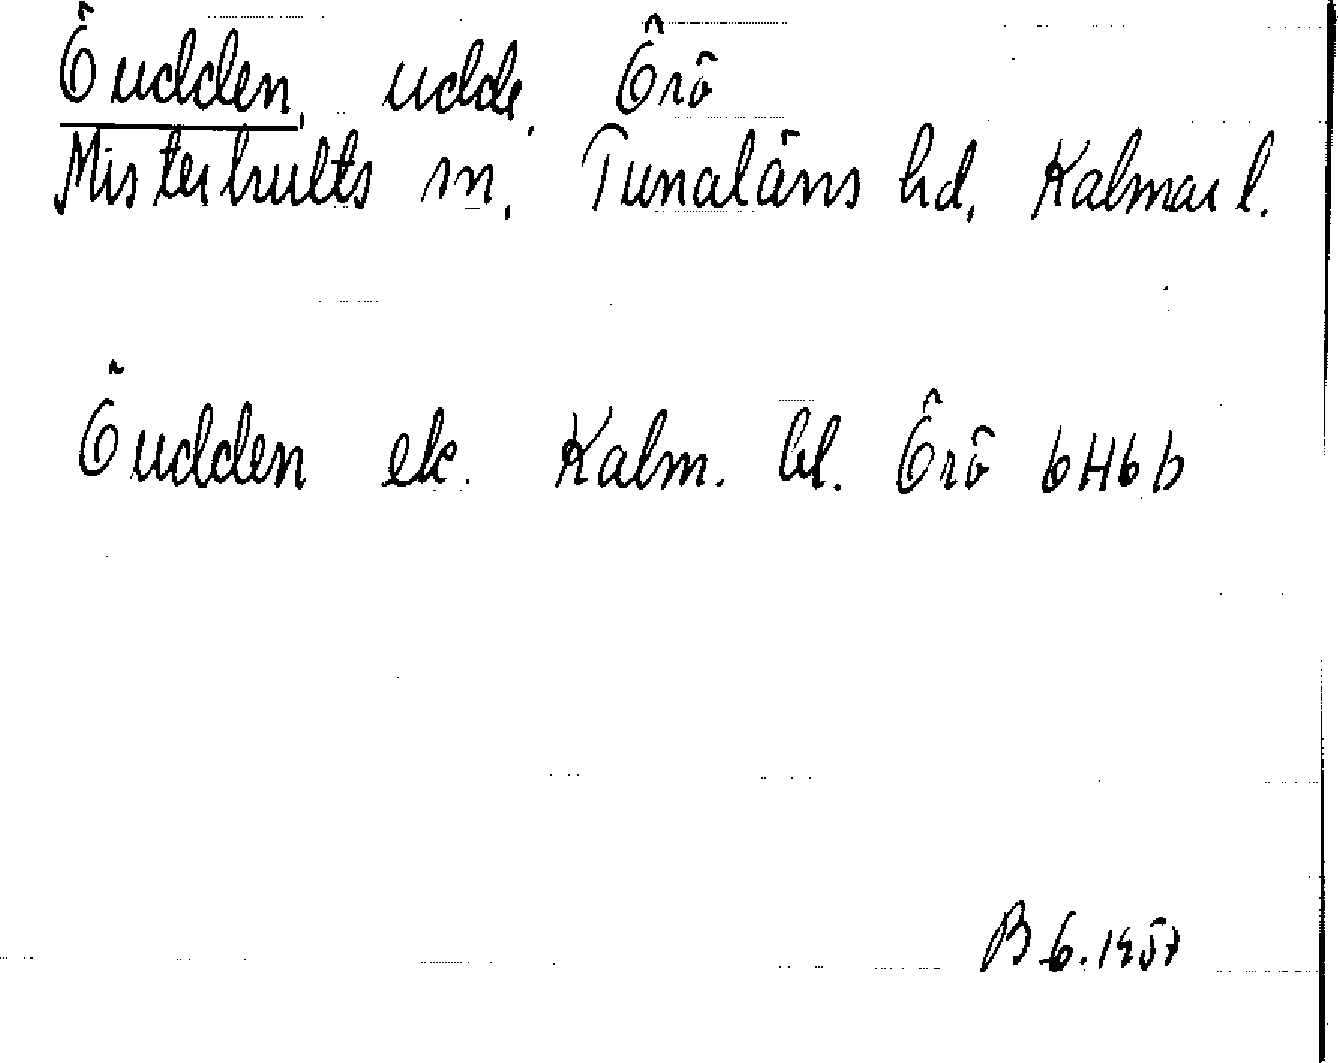 Öudden, udde, Örö
Misterhults sn, Tunaläns hd, Kalmar l.
Öudden ek. Kalm. bl. Örö 6H6b
B 6.1957